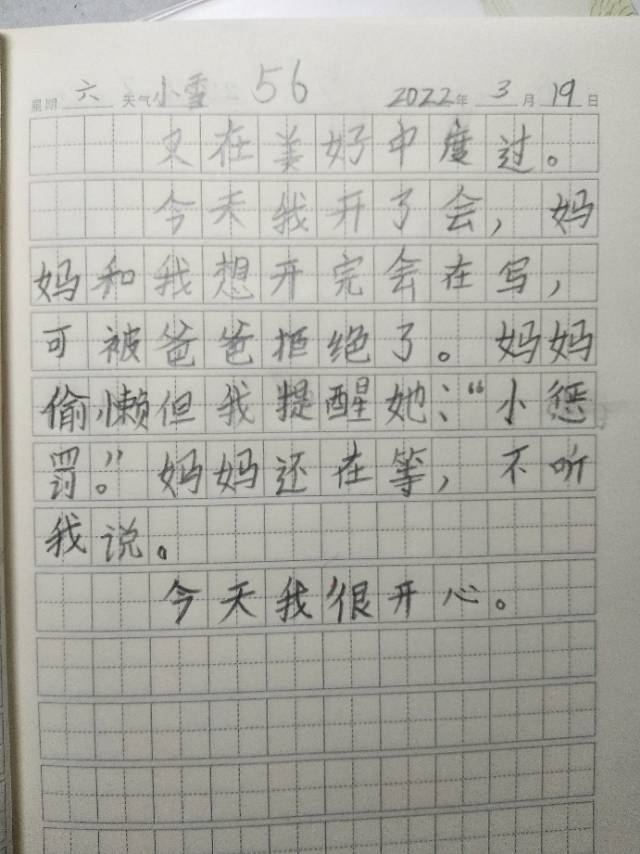 星期 六 天气 小雪 56 2022年 3月 19日
又在美好中度过。
今天我开了会，妈
妈和我想开完会在写，
可被爸爸拒绝了。妈妈
偷懒但我提醒她：“小惩
罚。”妈妈还在等，不听
我说。
今天我很开心。